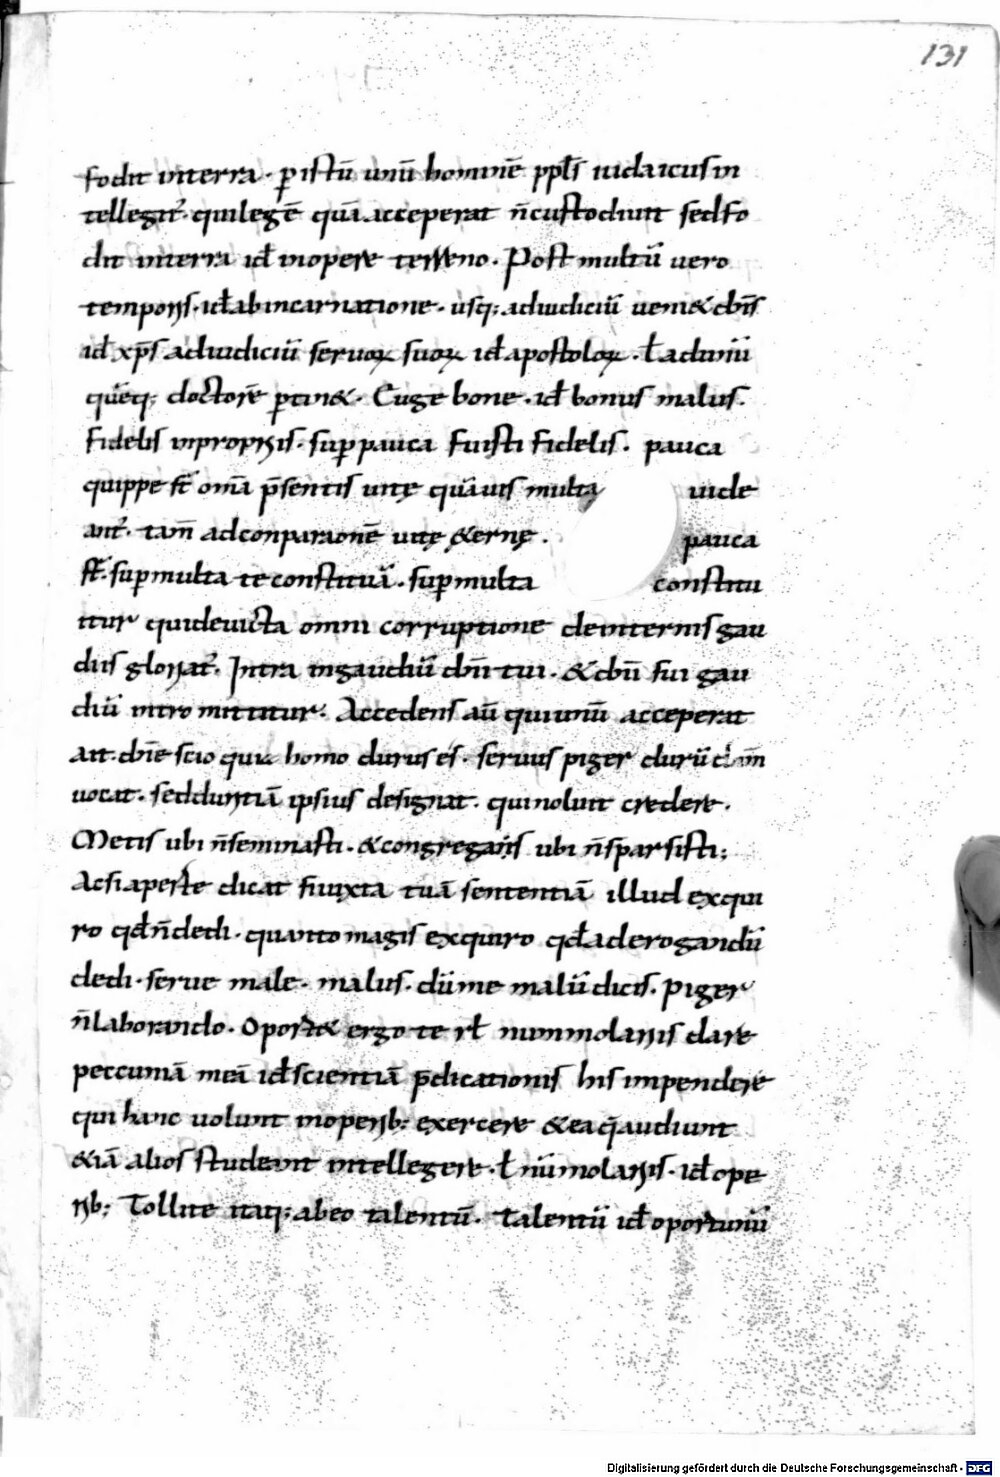 131
fodit interra · p istū unū hominē ppl̄s iudaicus in
tellegit᷑ · qui legē quā acceperat n̄ custodiuit sed fo
dit interra id̄ in opere terreno · Post multū uero
temporis · id̄ ab incarnatione · usq; ad iudiciū ueni& dn̄s
id̄ xp̄s ad iudiciū seruoꝝ suoꝝ id̄ apostoloꝝ · ł ad unū
quēq; doctorē ptin& · Euge bone · id̄ bonus malus ·
fidelis in propriis · sup pauca fuisti fidelis · pauca
quippe st̄ om̄a p̄sentis uitę quāuis multa uide
ant᷑ · tam̄ ad conparaonē uitę &ernę · pauca
st̄ · sup multa te constituā · sup multa constitu
itur qui deuicta omni corruptione de internis gau
diis gloriat᷑ · Intra in gaudiū dn̄i tui · & dn̄i sui gau
diū intro mittitur · Accedens aū qui unū acceperat
ait · dn̄e scio quia homo durus es · seruus piger durū
uocat · sed duritiā ipsius designat · qui noluit credere ·
Metis ubi n̄ seminasti · & congregans ubi n̄ sparsisti ;
Ac si aperte dicat si iuxta tuā sententiā illud exqui
ro qd̄ n̄ dedi · quanto magis exquiro qd̄ ad erogandū
dedi · serue male · malus · dū me malū dicis · piger
n̄ laborando · Oport& ergo te nummolariis dare
peccuniā meā id̄ scientiā p̄dicationis his impendere
qui hanc uolunt in operib; exercere & ea q̄ audiunt
&iā alios studeant intellegere · ł nūmolariis · id̄ ope
rib; Tollite itaq; ab eo talentū · talentū id̄ oportunū
Digitalisierung gefördert durch die Deutsche Forschungsgemeinschaft - DFG